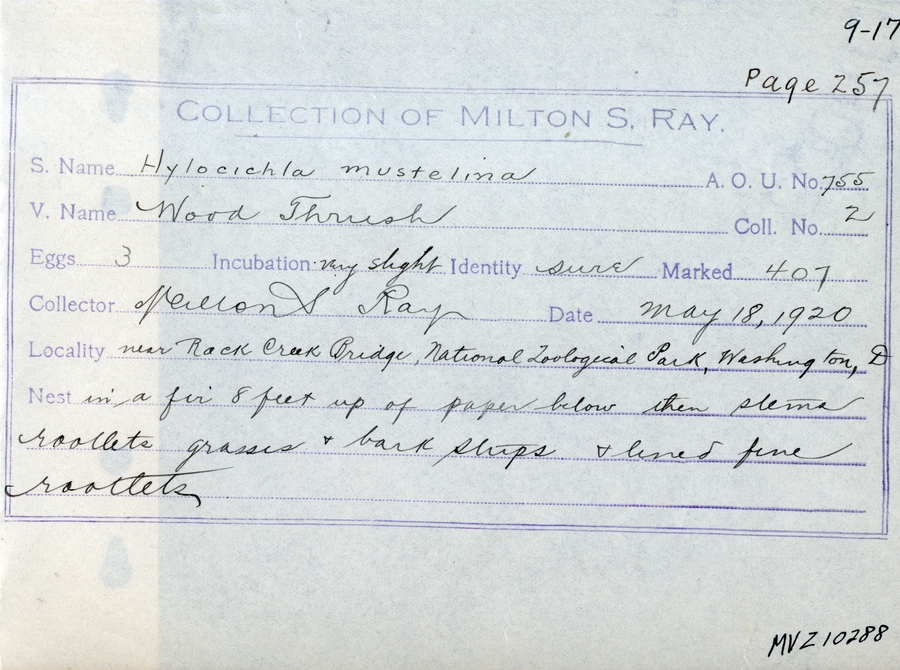 9-17
Page 257
COLLECTION OF MILTON S. RAY.
S. Name Hylocichla mustelina A. O. U. No. 755
V. Name Wood Thrush Coll. No. 2
Eggs 3 Incubation very slight Identity sure Marked 407
Collector Milton S Ray Date May 18, 1920
Locality near Rock Creek Bridge, National Zoological Park, Washington, D
Nest in a fir 8 feet up of paper below then stems
rootlets grasses & bark strips & lined fine
rootlets
MVZ 10288